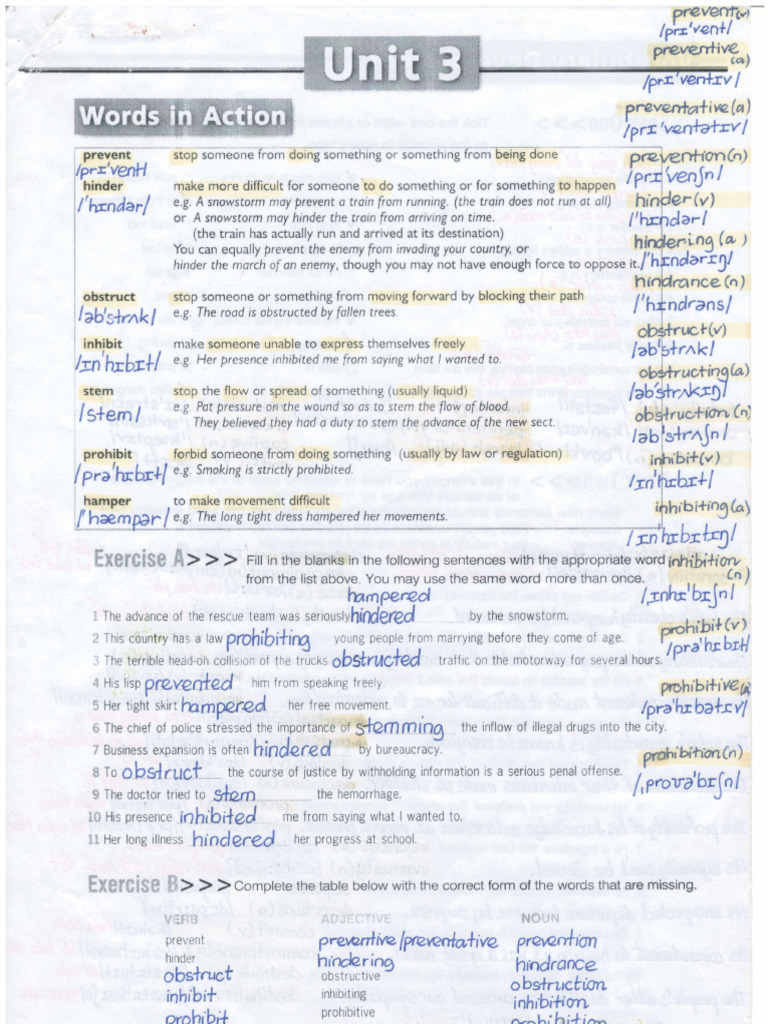 Unit 3
Words in Action
prevent stop someone from doing something or something from being done
/prɪ'vent/
hinder make more difficult for someone to do something or for something to happen
/'hɪndər/ e.g. A snowstorm may prevent a train from running. (the train does not run at all)
or A snowstorm may hinder the train from arriving on time.
(the train has actually run and arrived at its destination)
You can equally prevent the enemy from invading your country, or
hinder the march of an enemy, though you may not have enough force to oppose it.
obstruct stop someone or something from moving forward by blocking their path
/əb'strʌk/ e.g. The road is obstructed by fallen trees.
inhibit make someone unable to express themselves freely
/ɪn'hɪbɪt/ e.g. Her presence inhibited me from saying what I wanted to.
stem stop the flow or spread of something (usually liquid)
/stem/ e.g. Pat pressure on the wound so as to stem the flow of blood.
They believed they had a duty to stem the advance of the new sect.
prohibit forbid someone from doing something (usually by law or regulation)
/prə'hɪbɪt/ e.g. Smoking is strictly prohibited.
hamper to make movement difficult
/'hæmpər/ e.g. The long tight dress hampered her movements.
prevent(v)
/prɪ'vent/
preventive (a)
/prɪ'ventɪv/
preventative(a)
/prɪ'ventətɪv/
prevention(n)
/prɪ'venʃn/
hinder(v)
/'hɪndər/
hindering(a)
/'hɪndərɪŋ/
hindrance(n)
/'hɪndrəns/
obstruct(v)
/əb'strʌk/
obstructing(a)
/əb'strʌkɪŋ/
obstruction(n)
/əb'strʌʃn/
inhibit(v)
/ɪn'hɪbɪt/
inhibiting(a)
/ɪn'hɪbɪtɪŋ/
inhibition (n)
/ɪnhɪ'bɪʃn/
prohibit(v)
/prə'hɪbɪt/
prohibitive(a)
/prə'hɪbətɪv/
prohibition(n)
/ˌproʊə'bɪʃn/
Exercise A>>> Fill in the blanks in the following sentences with the appropriate word
from the list above. You may use the same word more than once.
hampered
1 The advance of the rescue team was seriously hindered by the snowstorm.
2 This country has a law prohibiting young people from marrying before they come of age.
3 The terrible head-on collision of the trucks obstructed traffic on the motorway for several hours.
4 His lisp prevented him from speaking freely.
5 Her tight skirt hampered her free movement.
6 The chief of police stressed the importance of stemming the inflow of illegal drugs into the city.
7 Business expansion is often hindered by bureaucracy.
8 To obstruct the course of justice by withholding information is a serious penal offense.
9 The doctor tried to stem the hemorrhage.
10 His presence inhibited me from saying what I wanted to.
11 Her long illness hindered her progress at school.
Exercise B>>> Complete the table below with the correct form of the words that are missing.
VERB ADJECTIVE NOUN
prevent preventive/preventative prevention
hinder hindering hindrance
obstruct obstructive obstruction
inhibit inhibiting inhibition
prohibit prohibitive prohibition